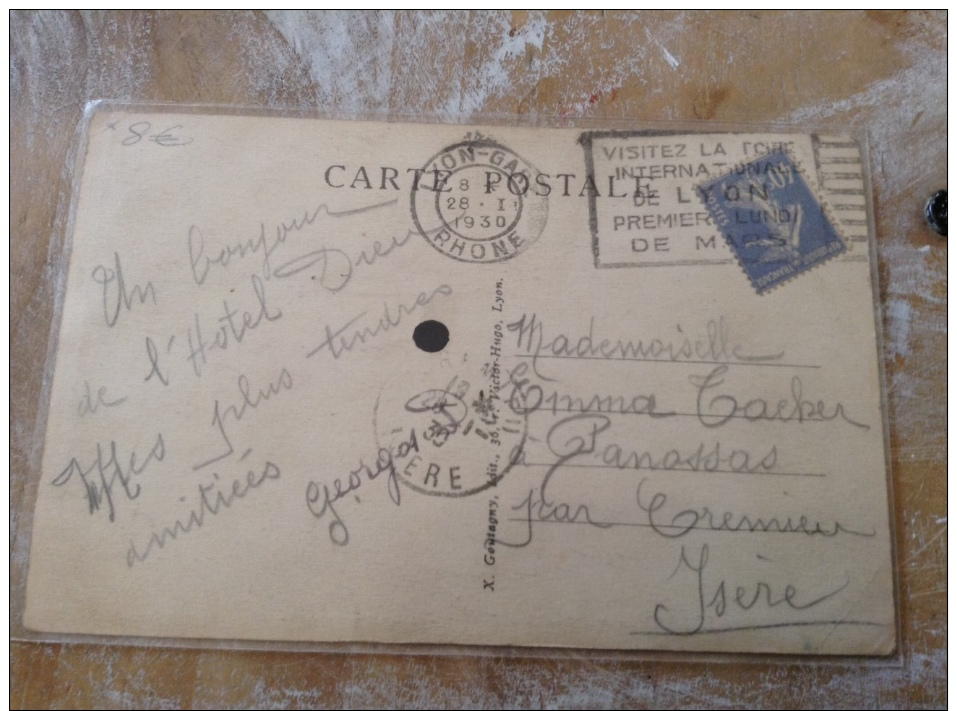 8 €
CARTE POSTALE
LYON-GARE
8
28 · I
1930
RHONE
VISITEZ LA FOIRE
INTERNATIONALE
DE LYON
PREMIER LUNDI
DE MARS
Un bonjour
de l'Hôtel Dieu
Mes plus tendres
amitiées
ERE
X. Goutagny, Édit., 36, r. Victor-Hugo, Lyon.
Mademoiselle
Emma Tacher
à Panossas
par Cremieu
Isère